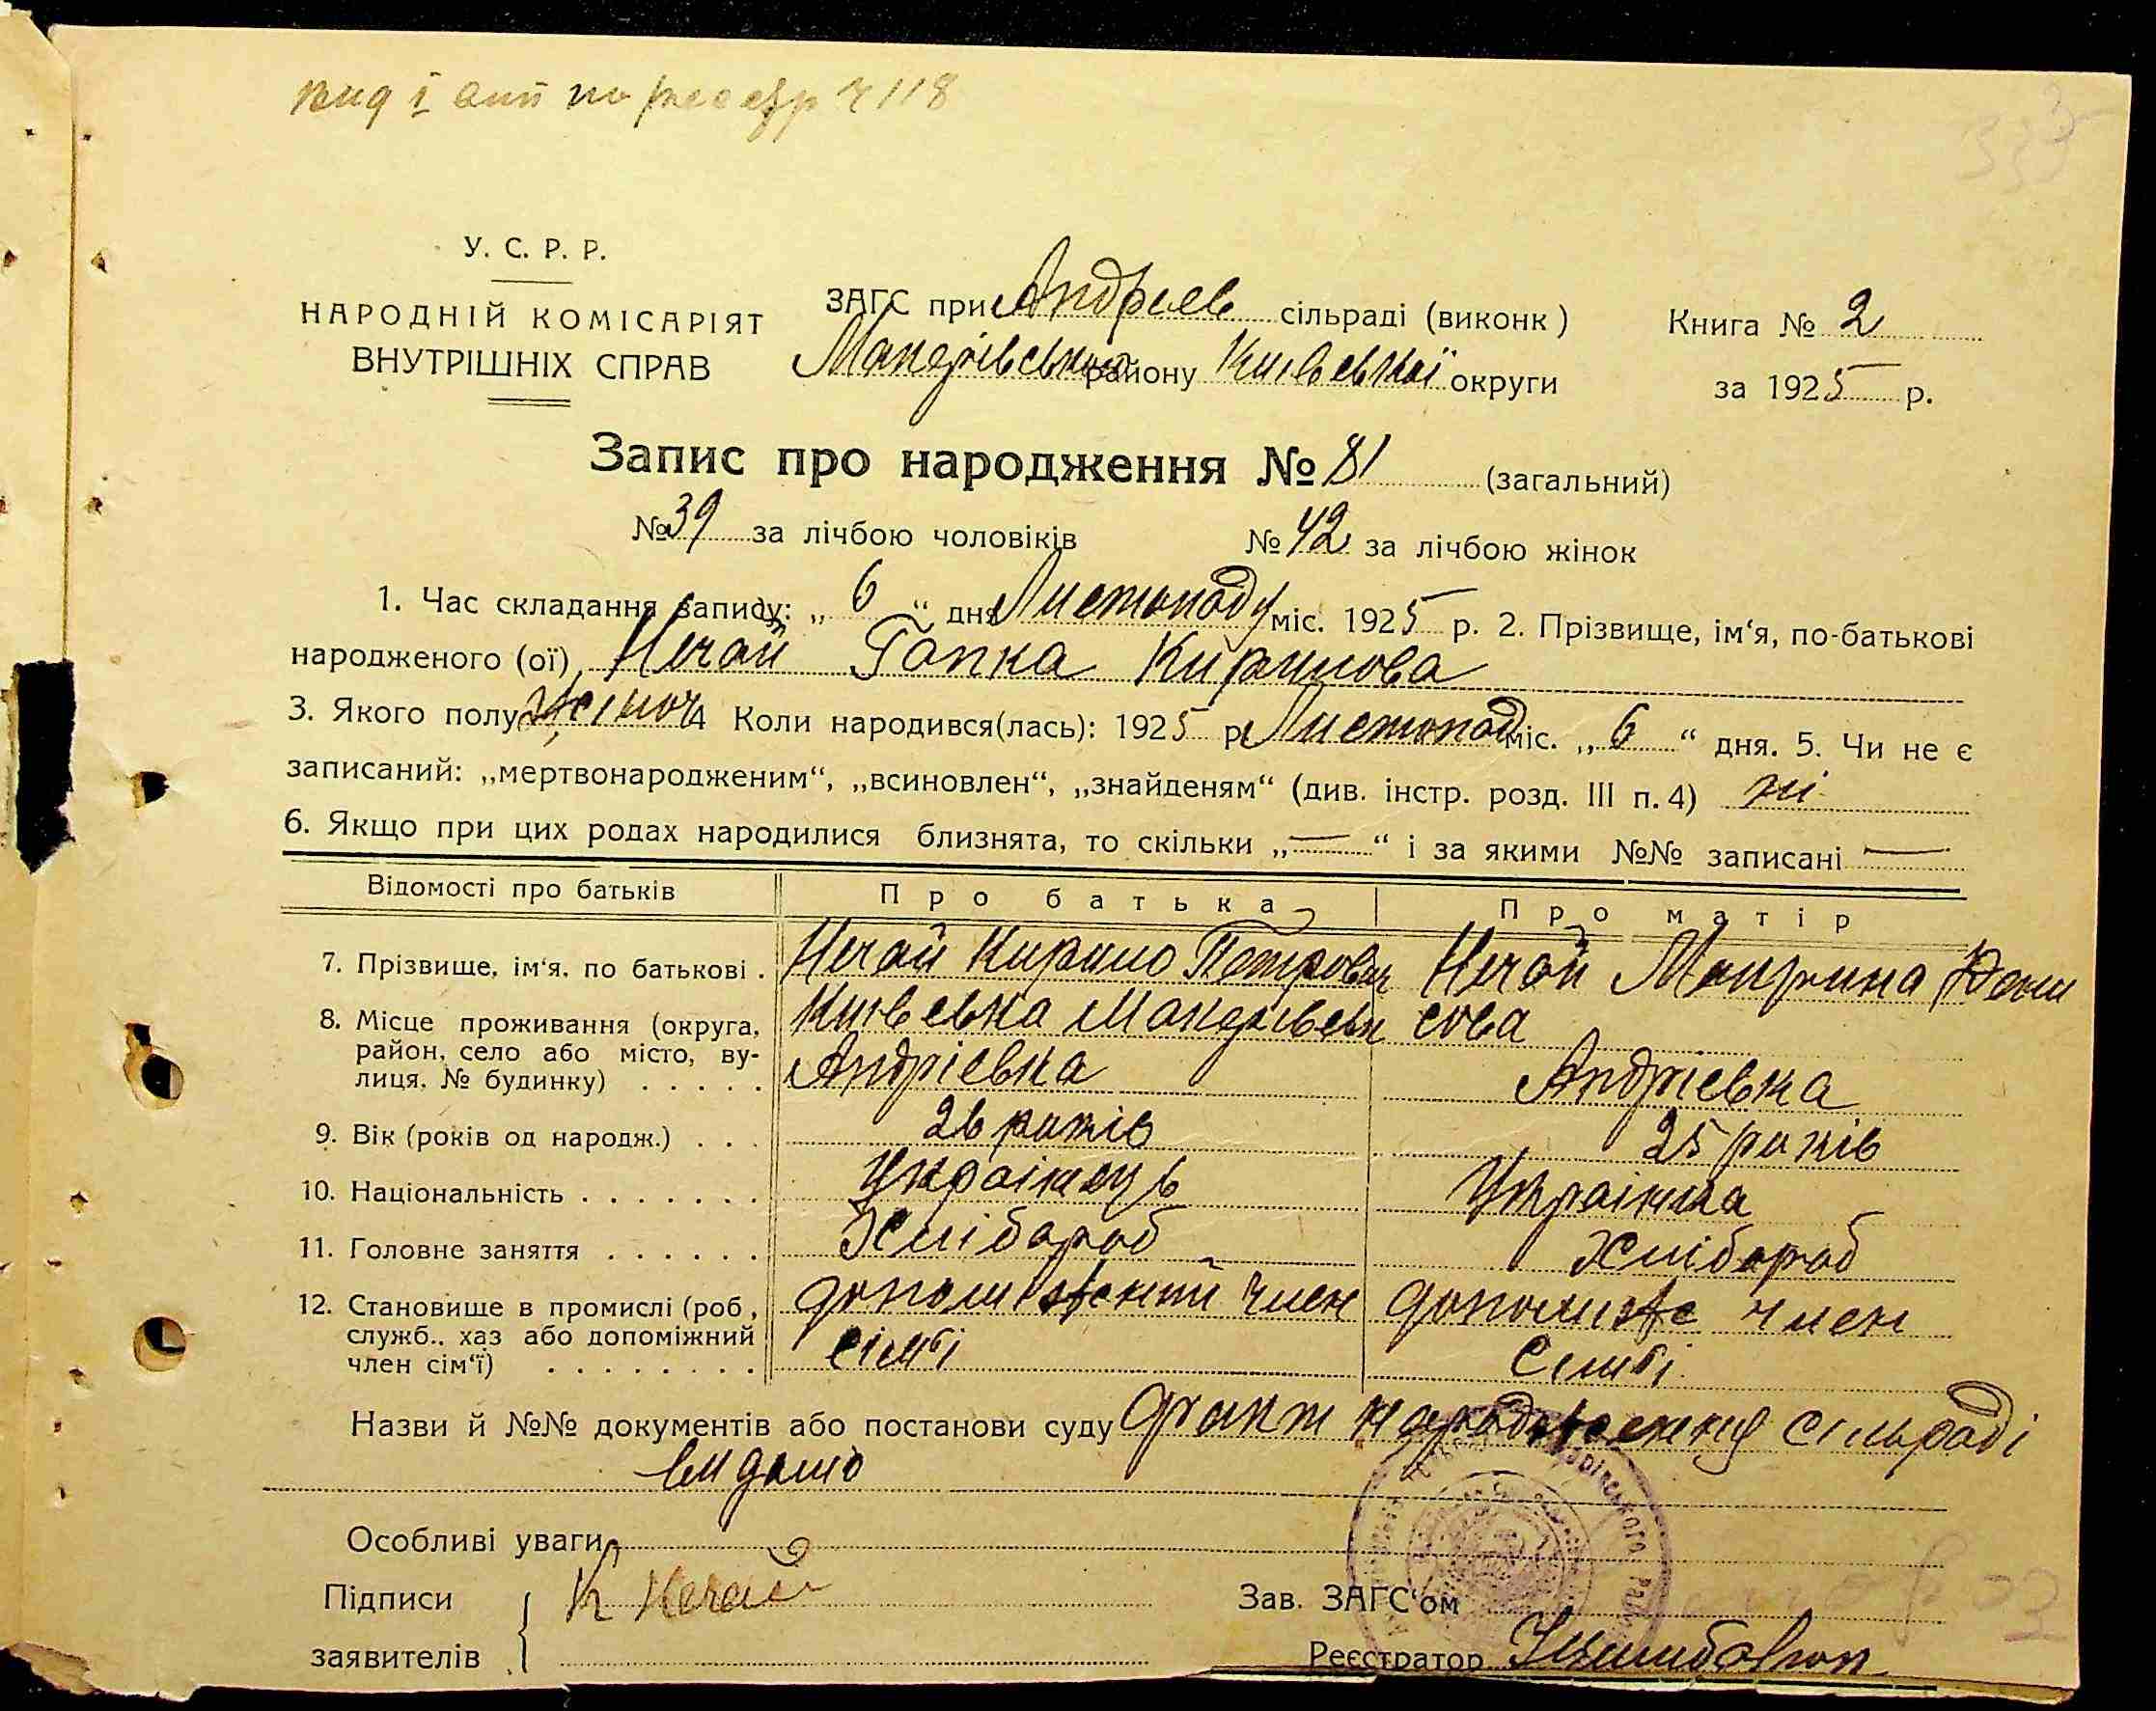 вид і вип по реєстр ч 118
335
У. С. Р. Р.
НАРОДНІЙ КОМІСАРІЯТ
ВНУТРІШНІХ СПРАВ
ЗАГС при Андріев сільраді (виконк)
Макарівського району Київської округи
Книга № 2
за 1925 р.
Запис про народження № 81 (загальний)
№ 39 за лічбою чоловіків № 42 за лічбою жінок
1. Час складання запису: „ 6 “ дня Листопаду міс. 1925 р. 2. Прізвище, ім‘я, по-батькові
народженого (ої) Нечай Гапка Кирилова
3. Якого полу жіноч 4 Коли народився(лась): 1925 р. Листопад міс. „ 6 “ дня. 5. Чи не є
записаний: „мертвонародженим“, „всиновлен“, „знайденям“ (див. інстр. розд. III п. 4) ні
6. Якщо при цих родах народилися близнята, то скільки „—“ і за якими №№ записані —
Відомості про батьків Про батька Про матір
7. Прізвище, ім‘я, по батькові . Нечай Кирило Петрович Нечай Маирина Дени
8. Місце проживання (округа, Київська Макарівськ сова
район, село або місто, ву-
лиця, № будинку) . . . . . Андрієвка Андрієвка
9. Вік (років од народж.) . . . 26 років 25 років
10. Національність . . . . . . . Українець Українка
11. Головне заняття . . . . . . Хлібороб Хлібороб
12. Становище в промислі (роб., допоміжний член допоміж член
служб., хаз або допоміжний
член сім‘ї) . . . . . . . . сімьі сімьі
Назви й №№ документів або постанови суду Факт народження сільраді
відомо
Особливі уваги
Підписи К Нечай
заявителів
Зав. ЗАГС‘ом
Реєстратор